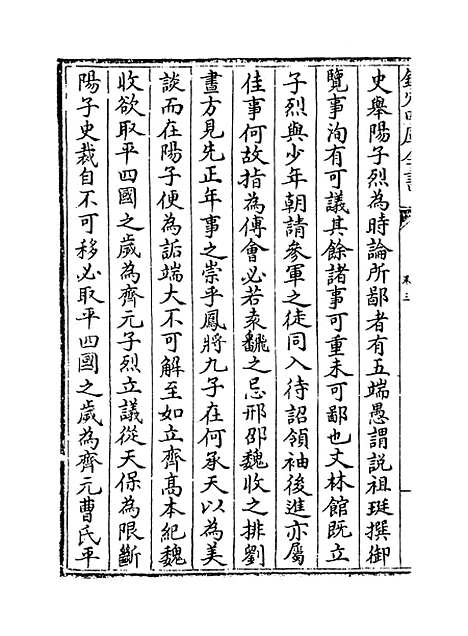 欽定四庫全書
卷三
史舉陽子烈為時論所鄙者有五端愚謂說祖珽撰御
覽事洵有可議其餘諸事可重未可鄙也文林館既立
子烈與少年朝請參軍之徒同入待詔領袖後進亦屬
佳事何故指為傅會必若袁翻之忌邢邵魏收之排劉
晝方見先正年事之崇乎鳳將九子在何承天以為美
談而在陽子便為詬端大不可解至如立齊髙本紀魏
收欲取平四國之歲為齊元子烈立議從天保為限斷
陽子史裁自不可移必取平四國之歲為齊元曹氏平